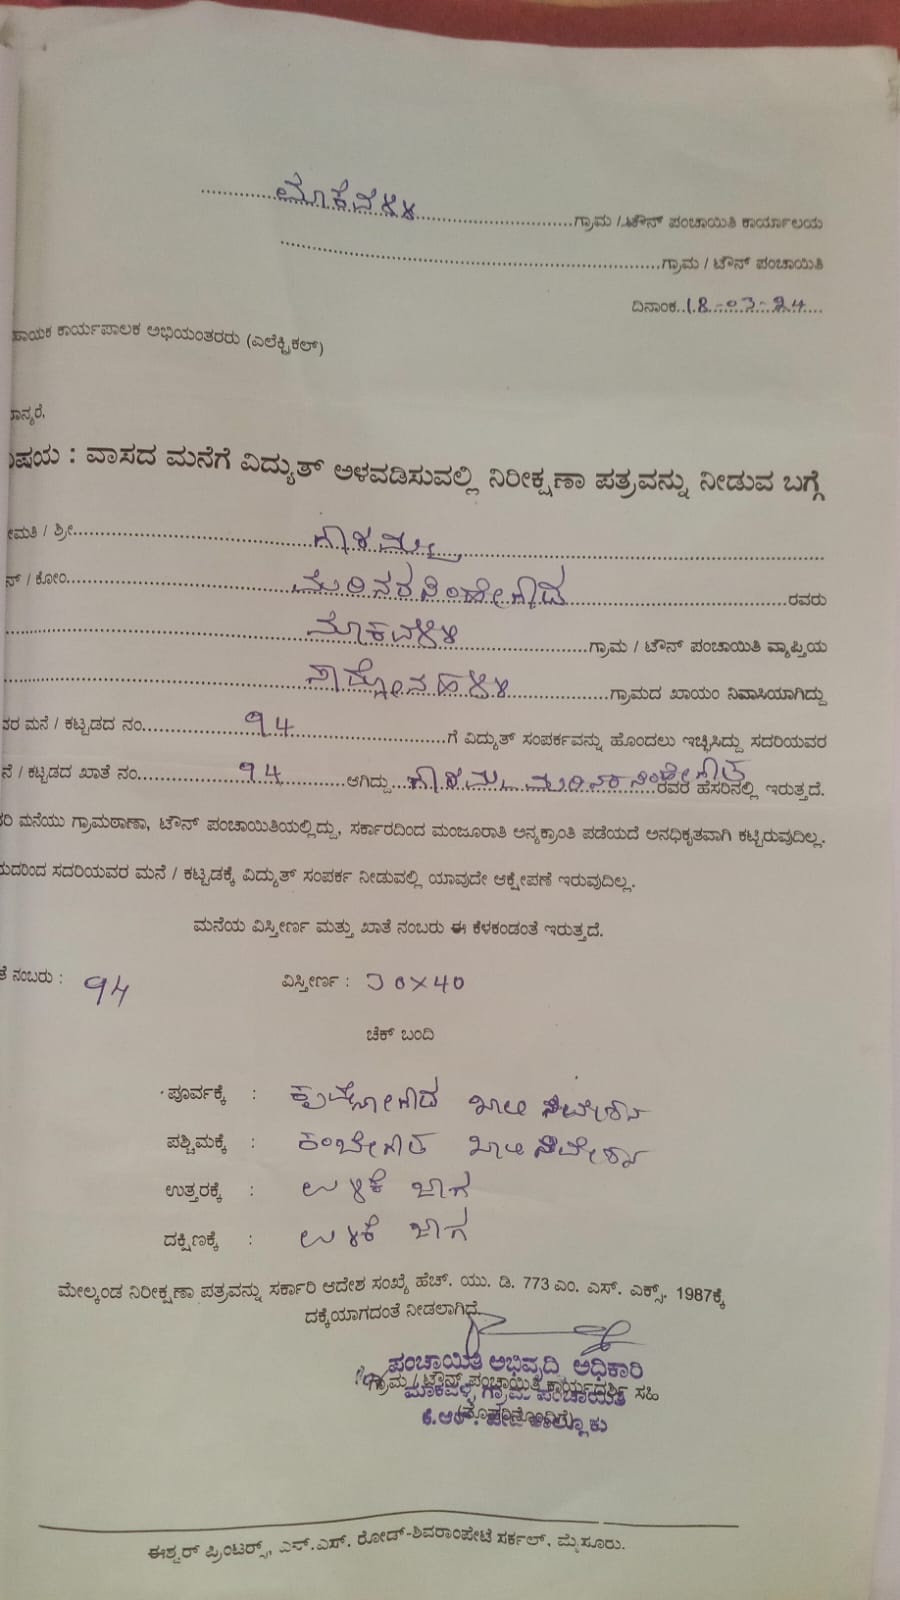 ಮಾಕವಳ್ಳಿ ಗ್ರಾಮ / ಟೌನ್ ಪಂಚಾಯಿತಿ ಕಾರ್ಯಾಲಯ
ಗ್ರಾಮ / ಟೌನ್ ಪಂಚಾಯಿತಿ
ದಿನಾಂಕ..18-03-24
ಹಾಯಕ ಕಾರ್ಯಪಾಲಕ ಅಭಿಯಂತರರು (ಎಲೆಕ್ಟ್ರಿಕಲ್)
ಾನ್ಯರೆ,
ವಿಷಯ : ವಾಸದ ಮನೆಗೆ ವಿದ್ಯುತ್ ಅಳವಡಿಸುವಲ್ಲಿ ನಿರೀಕ್ಷಣಾ ಪತ್ರವನ್ನು ನೀಡುವ ಬಗ್ಗೆ
ೀಮತಿ / ಶ್ರೀ
ನ್ / ಕೋಂ. ರವರು
ಗ್ರಾಮ / ಟೌನ್ ಪಂಚಾಯಿತಿ ವ್ಯಾಪ್ತಿಯ
ಗ್ರಾಮದ ಖಾಯಂ ನಿವಾಸಿಯಾಗಿದ್ದು
ವರ ಮನೆ / ಕಟ್ಟಡದ ನಂ. 94 ಗೆ ವಿದ್ಯುತ್ ಸಂಪರ್ಕವನ್ನು ಹೊಂದಲು ಇಚ್ಛಿಸಿದ್ದು ಸದರಿಯವರ
ನೆ / ಕಟ್ಟಡದ ಖಾತೆ ನಂ. 94 ಆಗಿದ್ದು ರವರ ಹೆಸರಿನಲ್ಲಿ ಇರುತ್ತದೆ.
ರಿ ಮನೆಯು ಗ್ರಾಮಠಾಣಾ, ಟೌನ್ ಪಂಚಾಯಿತಿಯಲ್ಲಿದ್ದು, ಸರ್ಕಾರದಿಂದ ಮಂಜೂರಾತಿ ಅನ್ಯಕ್ರಾಂತಿ ಪಡೆಯದೆ ಅನಧಿಕೃತವಾಗಿ ಕಟ್ಟಿರುವುದಿಲ್ಲ.
ುದರಿಂದ ಸದರಿಯವರ ಮನೆ / ಕಟ್ಟಡಕ್ಕೆ ವಿದ್ಯುತ್ ಸಂಪರ್ಕ ನೀಡುವಲ್ಲಿ ಯಾವುದೇ ಆಕ್ಷೇಪಣೆ ಇರುವುದಿಲ್ಲ.
ಮನೆಯ ವಿಸ್ತೀರ್ಣ ಮತ್ತು ಖಾತೆ ನಂಬರು ಈ ಕೆಳಕಂಡಂತೆ ಇರುತ್ತದೆ.
ತೆ ನಂಬರು : 94 ವಿಸ್ತೀರ್ಣ : 30×40
ಚೆಕ್ ಬಂದಿ
ಪೂರ್ವಕ್ಕೆ : ಖಾಲಿ ನಿವೇಶನ
ಪಶ್ಚಿಮಕ್ಕೆ : ಖಾಲಿ ನಿವೇಶನ
ಉತ್ತರಕ್ಕೆ : ಉಳಿಕೆ ಜಾಗ
ದಕ್ಷಿಣಕ್ಕೆ : ಉಳಿಕೆ ಜಾಗ
ಮೇಲ್ಕಂಡ ನಿರೀಕ್ಷಣಾ ಪತ್ರವನ್ನು ಸರ್ಕಾರಿ ಆದೇಶ ಸಂಖ್ಯೆ ಹೆಚ್. ಯು. ಡಿ. 773 ಎಂ. ಎಸ್. ಎಕ್ಸ್. 1987ಕ್ಕೆ
ದಕ್ಕೆಯಾಗದಂತೆ ನೀಡಲಾಗಿದೆ.
ಪಂಚಾಯಿತಿ ಅಭಿವೃದಿ ಅಧಿಕಾರಿ
ಗ್ರಾಮ / ಟೌನ್ ಪಂಚಾಯಿತಿ ಕಾರ್ಯದರ್ಶಿ ಸಹಿ
ಮಾಕವಳ್ಳಿ ಗ್ರಾಮ ಪಂಚಾಯಿತಿ
ಈಶ್ವರ್ ಪ್ರಿಂಟರ್ಸ್, ಎನ್.ಎಸ್. ರೋಡ್-ಶಿವರಾಂಪೇಟೆ ಸರ್ಕಲ್, ಮೈಸೂರು.